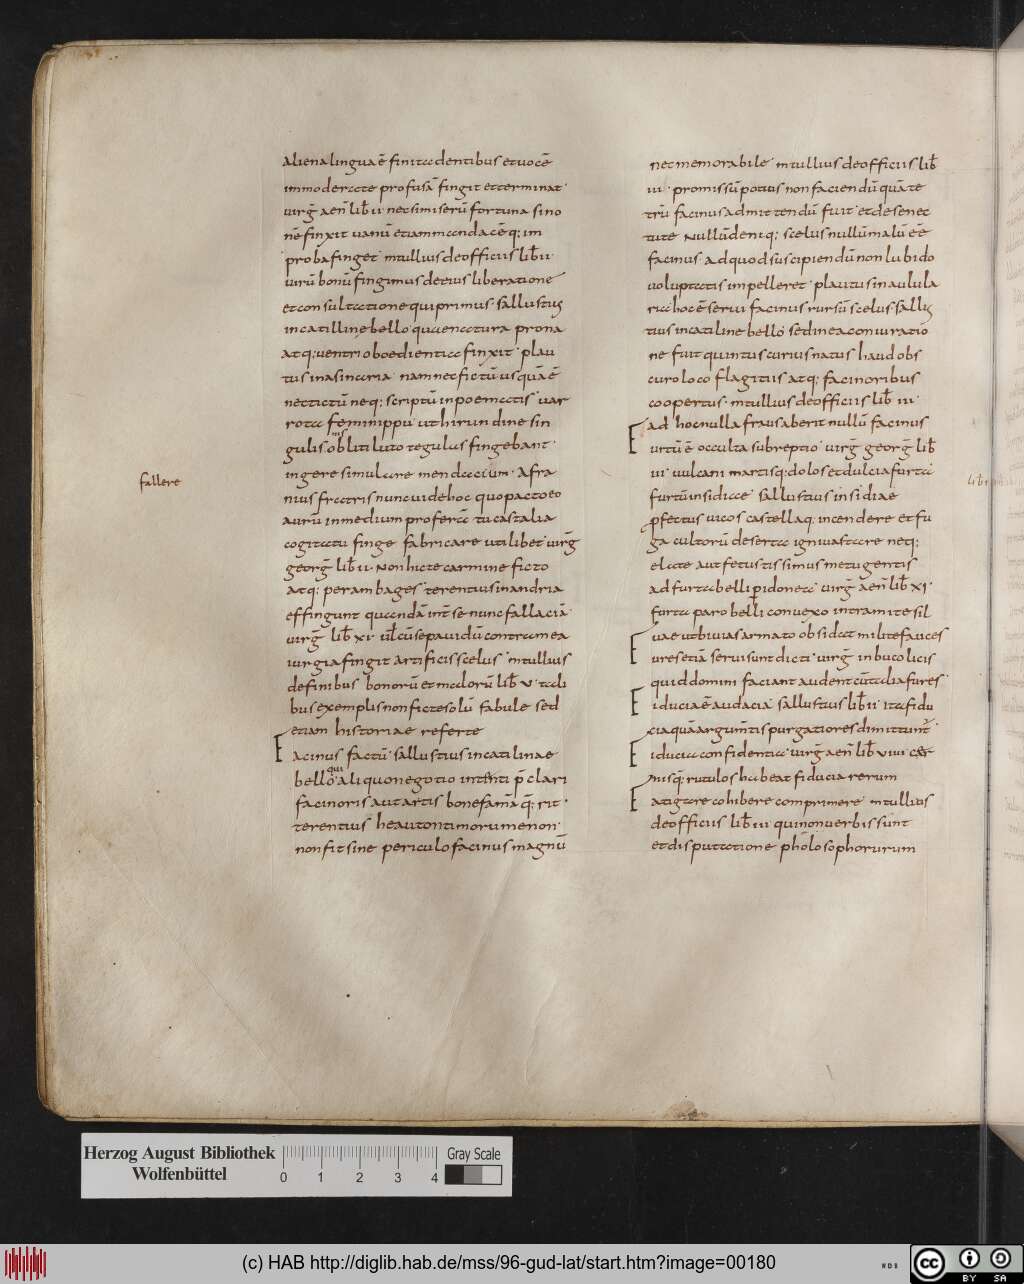 alienalingua ē finita dentibus et uocē
immoderate profusā fingit et terminat ·
uirg̅ aen̅ lib̅ ii · nec si miserū fortuna sino
nē finxit uanū etiam mendacē q; im
proba finget · m tullius de officiis lib̅ ii ·
uirū bonū fingimus deeius liberatione
et consultatione qui primus · sallustius
in catilline bello · quae natura prona
atq; uentri oboedientia finxit · plau
tus in asinaria · nam nec fictū usquā ē
nec pictū neq; scriptū in poematis · uar
ro fallere feminippu · ut hirundine sin
gulis oblitiluto tegulas fingebant ·
ingere simulare mendacium · afra
nius fratris nunc uide hoc quo pacto eo
aurū in medium profera tu castalia
cogitatu finge fabricare uti libet · uirg̅
georg̅ lib̅ ii · non hic te carmine ficto
atq; per ambages · terentius in andria
effingunt quandā int̅ se nunc fallaciā ·
uirg̅ lib̅ xi · ul̅ cū se pauidū contra mea
iurgia fingit artificis scelus · m tullius
de finibus bonorū et malorū lib̅ v · tali
bus exemplis non fictes olū fabule sed
etiam historiae referte
Facinus factū · sallustius in catilinae
bello · qui aliquo negotio intenti p̅clari
facinoris aut artis bone famā q̅rit ·
terentius heautontimorumenon ·
non fit sine periculo facinus magnū
fallere
nec memorabile · m tullius de officiis lib̅
iii · promissū potius non faciendū quā te
trū facinus admittendū fuit · et de senec
tute · nullū deniq; scelus nullū malū ee
facinus · ad quod suscipiendū non lubido
uoluptatis impelleret · plautus in aulula
ria hoc ē serui facinus rursū scelus · sallus
tius in catiline bello · sed in ea coniuratio
ne fuit quintus curius natus haud obs
curo loco flagitiis atq; facinoribus
coopertus · m tullius de officiis lib̅ iii ·
ad hoc nulla fraus aberit nullū facinus
Furtū ē occulta subreptio · uirg̅ georg̅ lib̅
iiii · uulcani martisq; dolos et dulcia furta
furtū insidiae · sallustius insidiae
profectus uicos castellaq; incendere et fu
ga cultorū deserta igni uastare neq;
elate aut fetus tissimus metu gentis
ad furta belli pidonea · uirg̅ aen̅ lib̅ xi ·
furta paro belli conuexo in tramite sil
uae ut biuias armato obsidat milite fauces
Fures etiā serui sunt dicti · uirg̅ in bucolicis
quid domini faciant audent cū talia fures ·
Fiducia ē audacia · sallustius lib̅ ii · ita fidu
cia quā argumtis purgatiores dimittunt̅
Fiducia confidentia · uirg̅ aen̅ lib̅ viiii ·
nisq̅ rutulos habeat fiducia rerum
Fatigare cohibere comprimere · m tullius
de officiis lib̅ iii · qui non uerbis sunt
et disputatione pholosophorurum
Herzog August Bibliothek
Wolfenbüttel
0 1 2 3 4
Gray Scale
(c) HAB http://diglib.hab.de/mss/96-gud-lat/start.htm?image=00180
WDB
cc BY SA